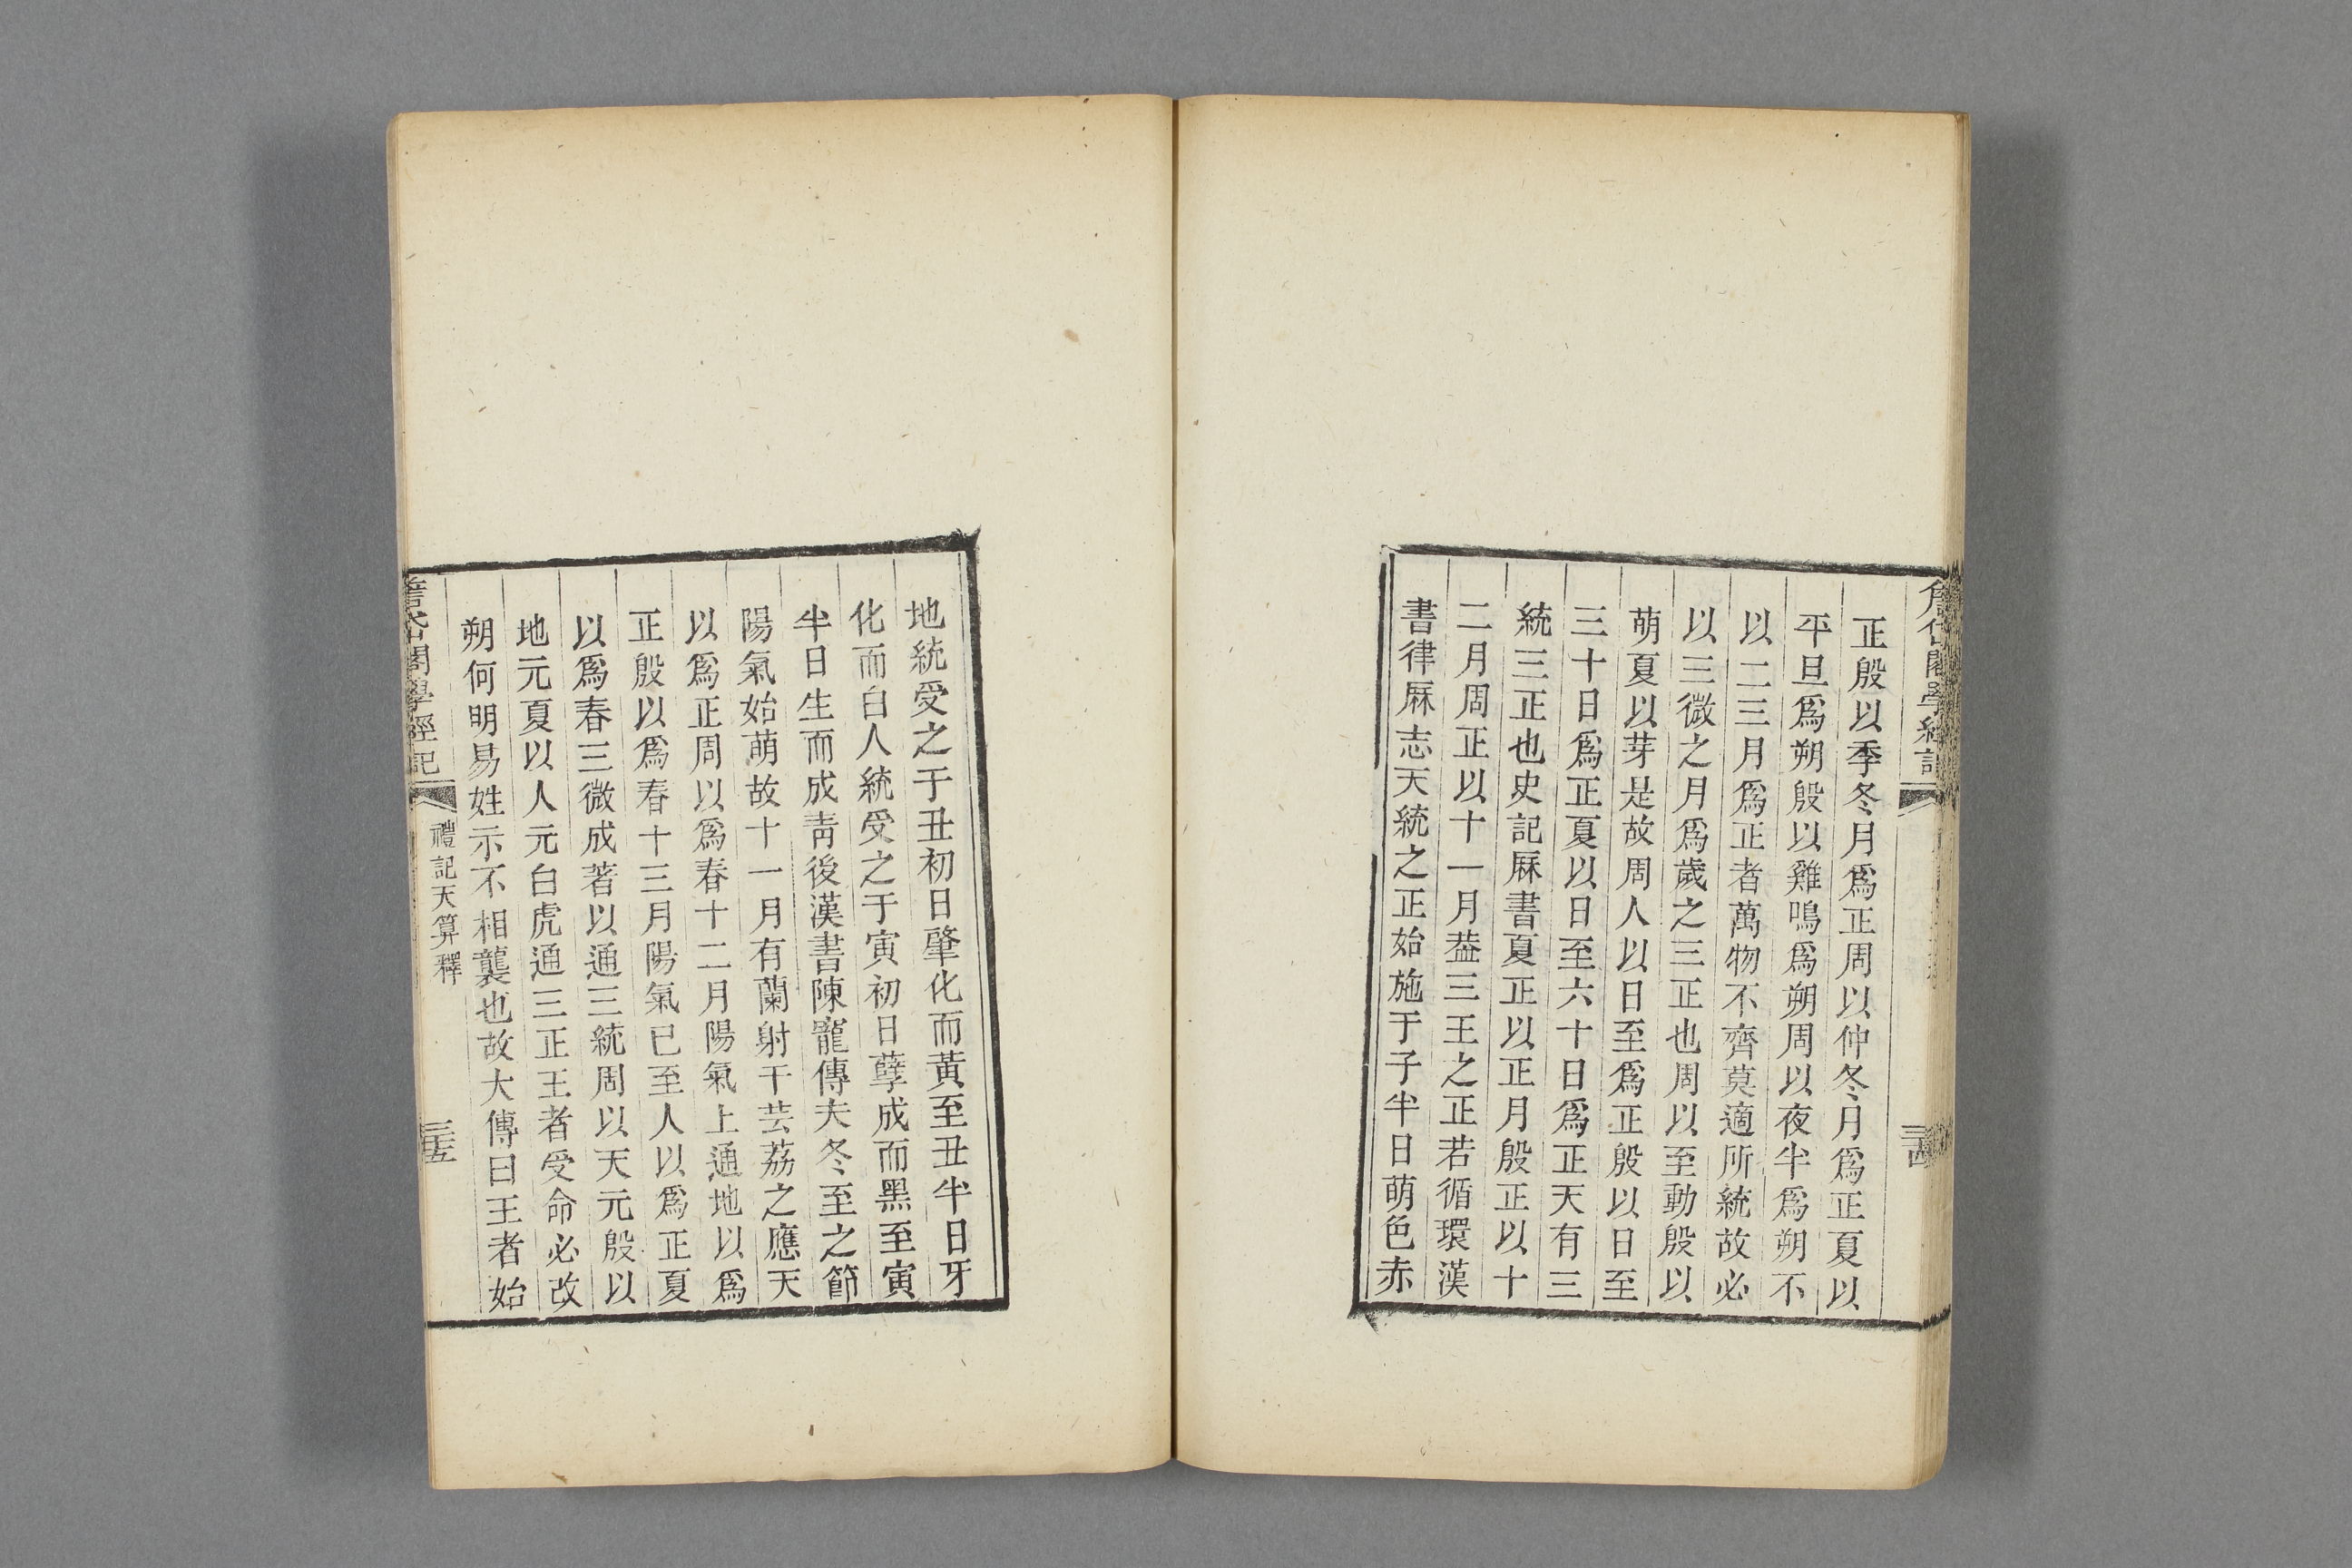 正殷以季冬月爲正周以仲冬月爲正夏以
平旦爲朔殷以雞鳴爲朔周以夜半爲朔不
以二三月爲正者萬物不齊莫適所統故必
以三微之月爲歲之三正也周以至動殷以
萌夏以芽是故周人以日至爲正殷以日至
三十日爲正夏以日至六十日爲正天有三
統三正也史記厤書夏正以正月殷正以十
二月周正以十一月葢三王之正若循環漢
書律厤志天統之正始施于子半日萌色赤
地統受之于丑初日肇化而黃至丑半日牙
化而白人統受之于寅初日孽成而黑至寅
半日生而成靑後漢書陳寵傳夫冬至之節
陽氣始萌故十一月有蘭射干芸荔之應天
以爲正周以爲春十二月陽氣上通地以爲
正殷以爲春十三月陽氣已至人以爲正夏
以爲春三微成著以通三統周以天元殷以
地元夏以人元白虎通三正王者受命必改
朔何明易姓示不相襲也故大傳曰王者始
閣學經記
禮記天算釋
三十五